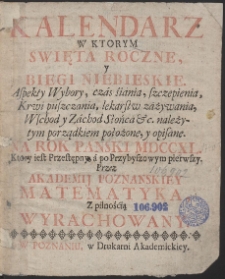 KALENDARZ
W KTORYM
SWIĘTA ROCZNE,
y
BIEGI NIEBIESKIE.
Aspekty Wybory, czás śiania, szczepienia,
Krwi puszczania, lekarstw záżywania,
Wschod y Záchod Słońca &c. należy-
tym porządkiem położone, y opisane.
NA ROK PANSKI MDCCXL.
Ktory iest Przestępny, á po Przybyszowym pierwszy.
Przez
AKADEMII POZNANSKIEY
MATEMATYKA
Z pilnością
106.902
WYRACHOWANY
W POZNANIU, w Drukarni Akademickiey.